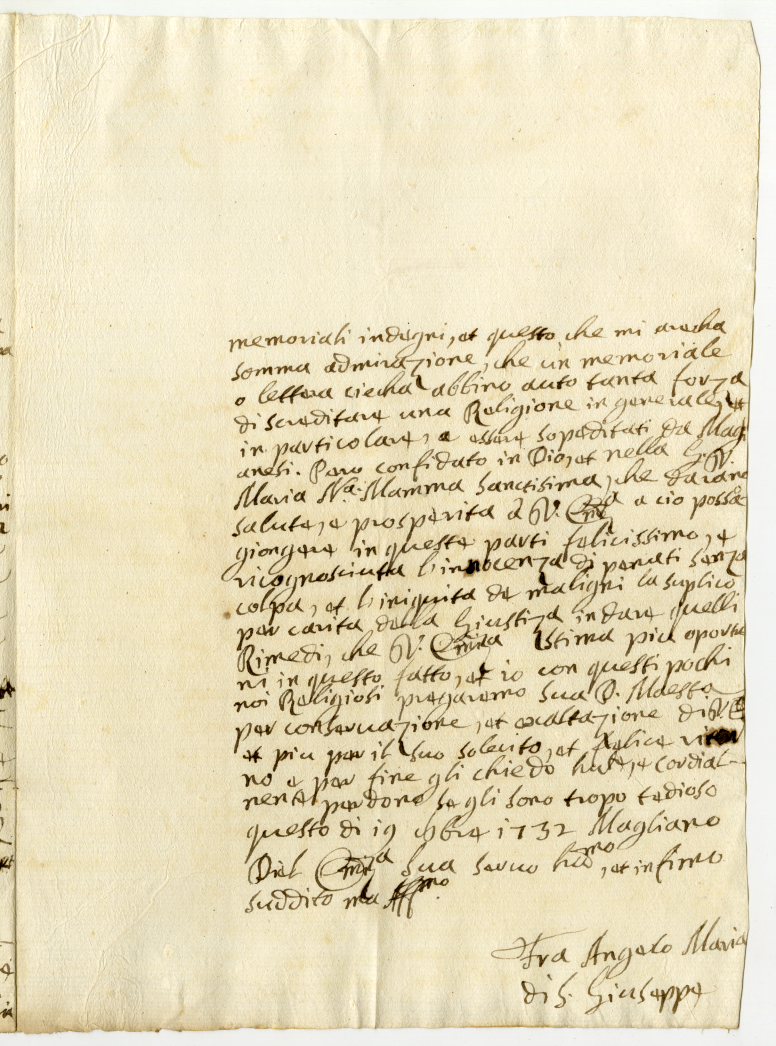 memoriali indegni, et questo, che mi arecha
somma admirazione, che un memoriale
o lettera ciecha abbino auto tanta forza
di screditare una Religione in generale, et
in particolare, e essere sopeditati da Magi
anesi. Pero confidato in Dio, et nella G. V.
Maria Nra. Mamma Sanctisima, che darano
salute, e prosperita à V. Emza a cio possa
giongere in queste parti felicissimo, e
ricognosciuta l'innocenza di penati senza
colpa, et l'iniquita de maligni la suplico
per carita della Giustiza in dare quelli
Rimedi, che V. Eminza istima piu oportu
ni in questo fatto, et io con questi pochi
noi Religiosi pregaremo sua D. Maesta
per conservazione, et exaltazione di V. E
et piu per il suo solecito, et felice ritor
no e per fine gli chiedo hule, e cordial-
mente perdono se gli sono tropo tedioso
questo di 19 9bre 1732 Magliano
Del Emza Sua servo humo, et infimo
suddito ma Affmo.
Fra Angelo Maria
di S. Giuseppe